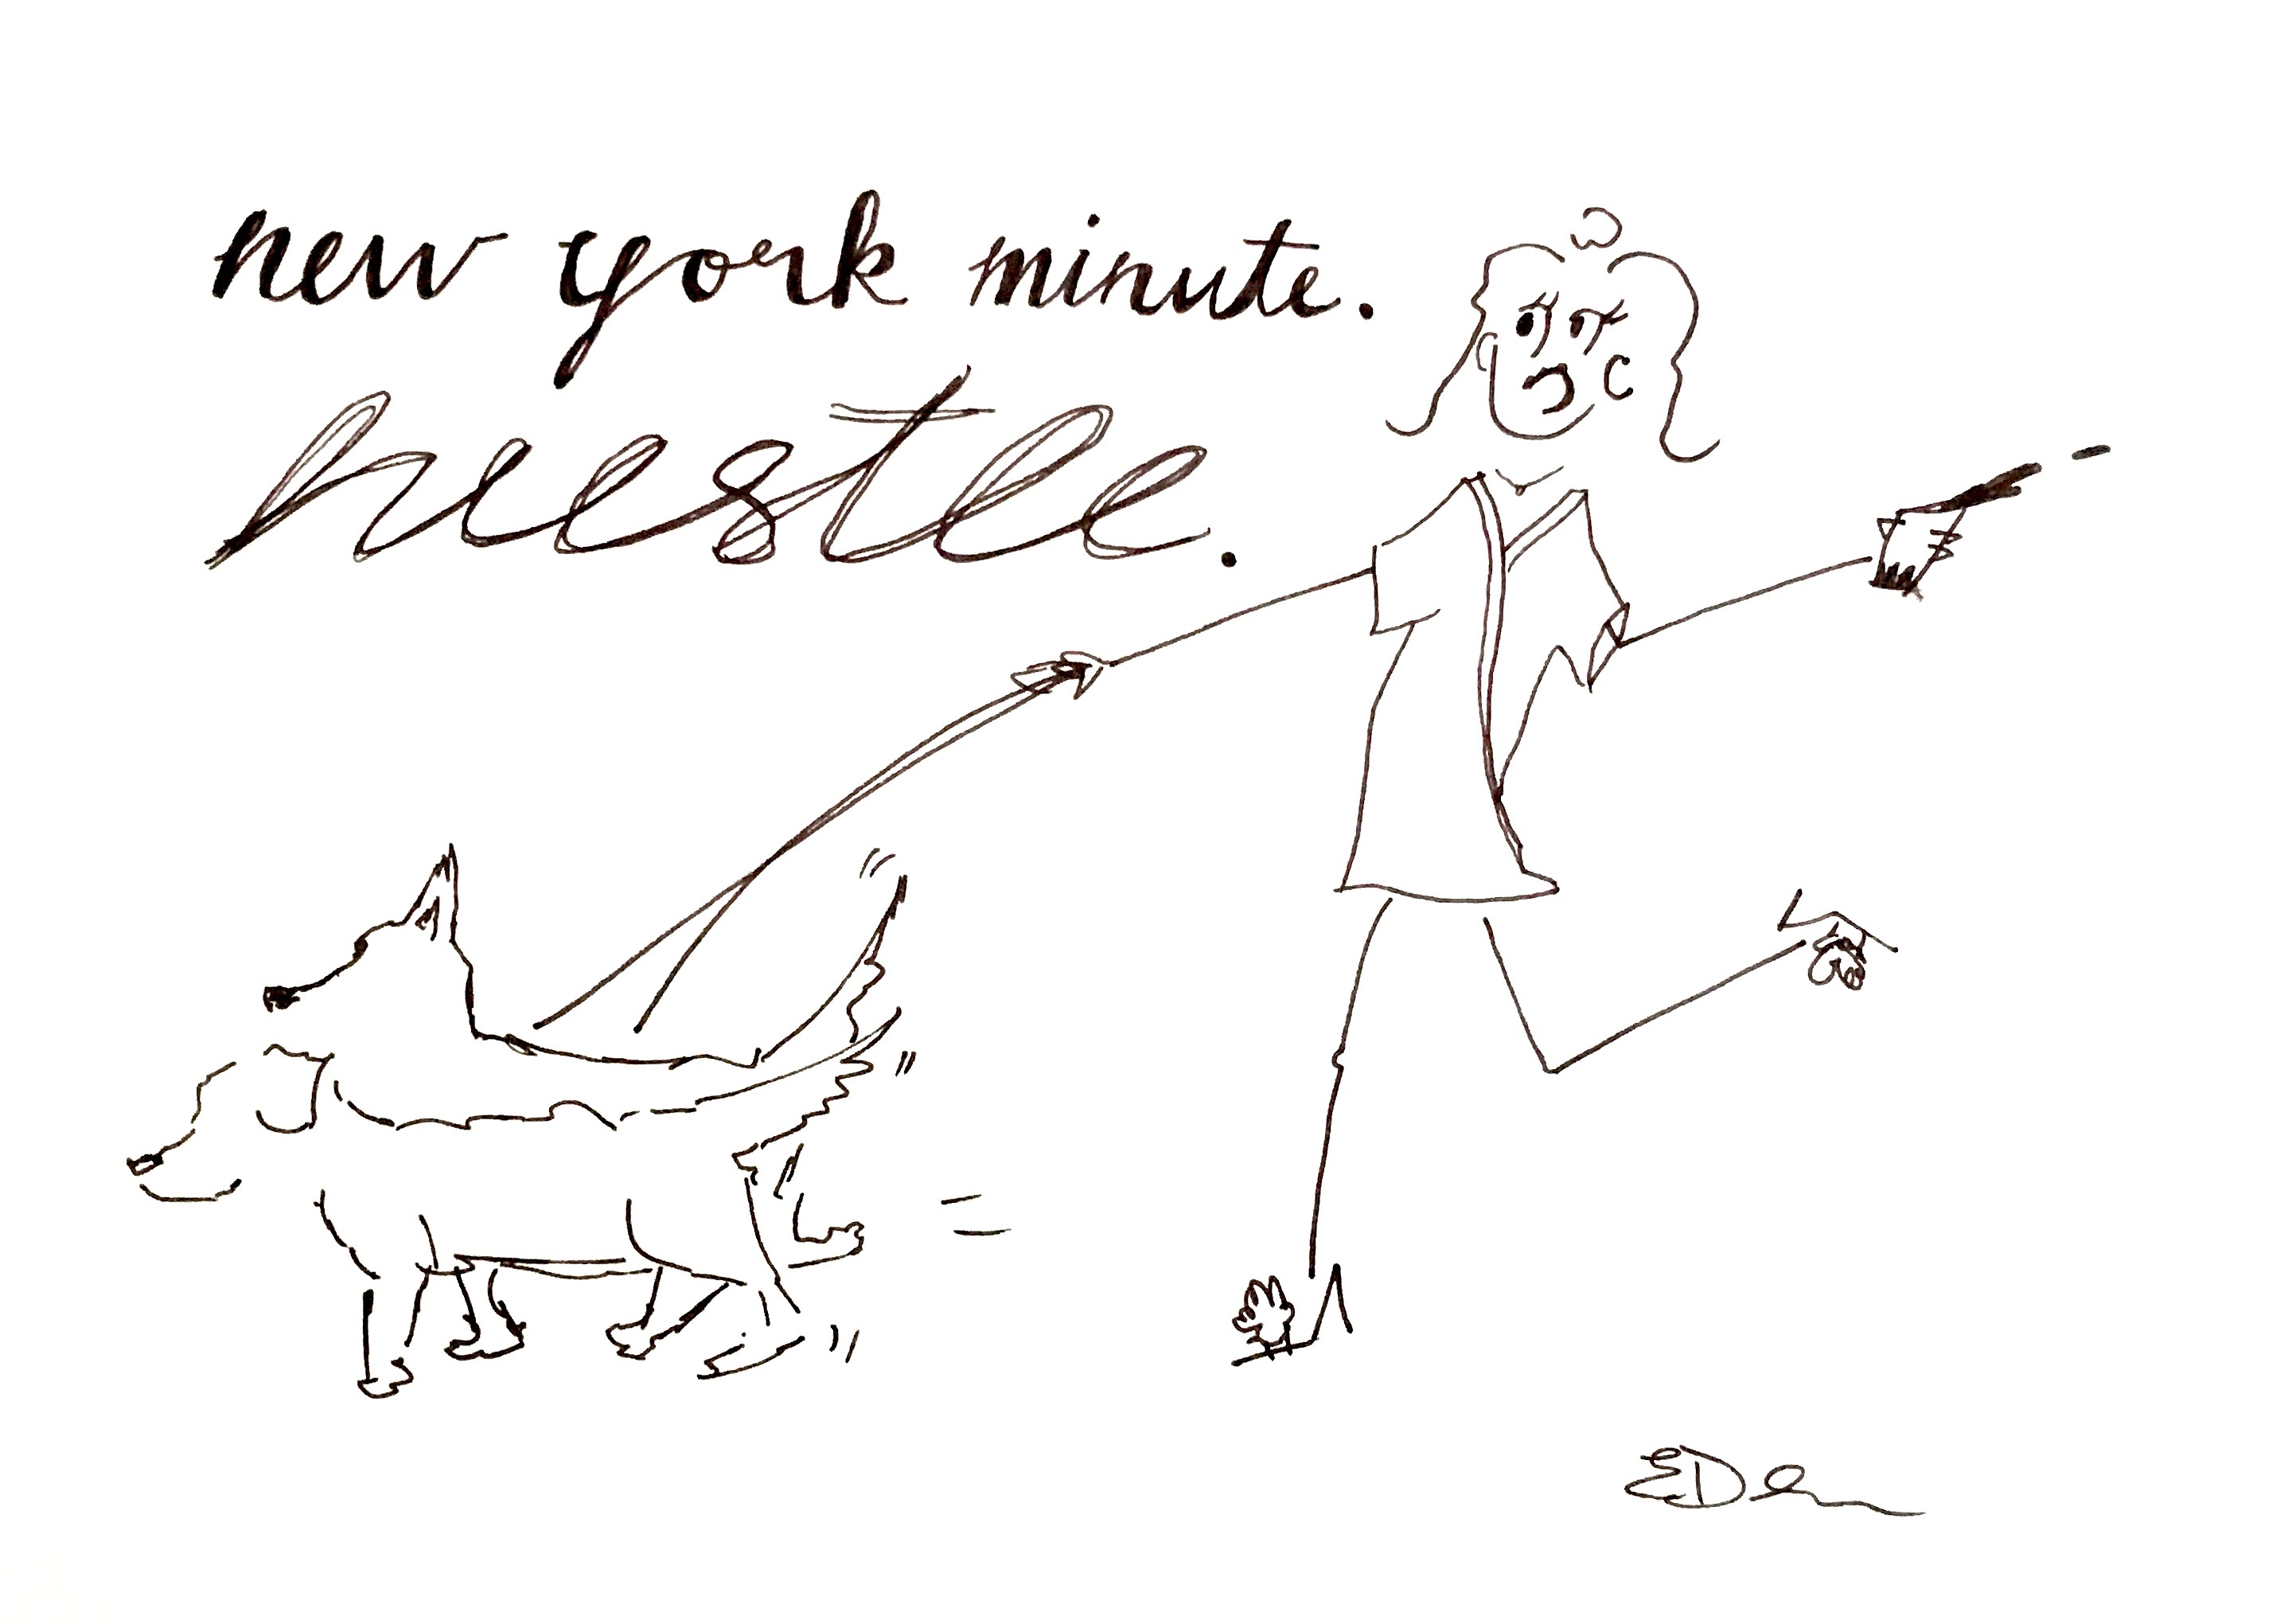 new york minute.
hustle.
EDen